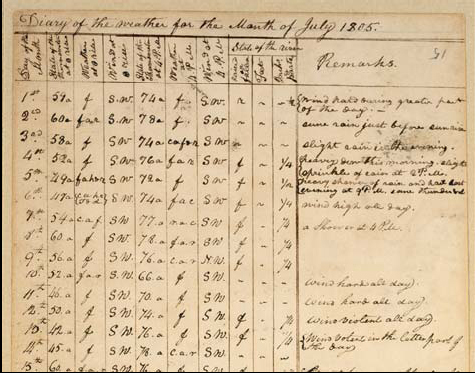 Diary of the weather for the Month of July 1805.
Day of the Month
State of the Thermometer at
Weather at
Wind at
State of the Thermometer at 4 P.M.
Weather at 4 P.M.
Wind at 4 P.M.
State of the river
Feet
Remarks.
51
1st 59 a f S.W. 74 a f S.W. r - - ½ Wind hard during greater part
of the day.
2nd 60 a S.W. 78 a f S.W. - - some rain just before sunrise
3rd 58 a f S.W. 74 a S.W. - - slight rain in the evening.
4th 52 a f S.W. 76 a S.W. f - ¼ heavy dew this morning. slight
sprinkle of rain at 2 P.M.
5th 49 a S.W. 72 a f S.W. f - heavy shower of rain and
evening at P.M. some thunder
6th 47 a S.W. 74 a S.W. f - ¼ wind high all day.
7th 54 a c a f S.W. 77 a S.W. f - ¼ a Shower at 4 P.M.
8th 60 a f S.W. 78 a S.W. f - ¼
9th 56 a f S.W. 76 a c a r N.W. f - ¼
10th 52 a f a r S.W. 66 a f S.W. - - - wind hard all day.
11th 46 a f S.W. 70 a f S.W. - - - wind hard all day.
12th 50 a f S.W. 74 a f S.W. f - wind violent all day.
42 a f S.W. 76 a f S.W. f - ¼ Wind violent in the latter part of
the day
45 a f S.W. 78 a c a r S.W. - - -
15th 60 a S.W. 76 a f S.W.